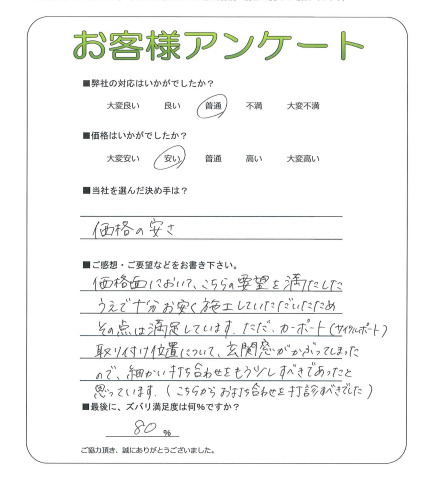 お客様アンケート
■弊社の対応はいかがでしたか？
大変良い　良い　普通　不満　大変不満
■価格はいかがでしたか？
大変安い　安い　普通　高い　大変高い
■当社を選んだ決め手は？
価格の安さ
■ご感想・ご要望などをお書き下さい。
価格面において、こちらの要望を満たした
うえで十分お安く施工していただいたため
その点は満足しています。ただ、カーポート（サイクルポート）
取り付け位置について、玄関窓がかぶってしまった
ので、細かい打ち合わせをもう少しすべきであったと
思っています。（こちらからお打ち合わせを打診すべきでした）
■最後に、ズバリ満足度は何%ですか？
80 %
ご協力頂き、誠にありがとうございました。